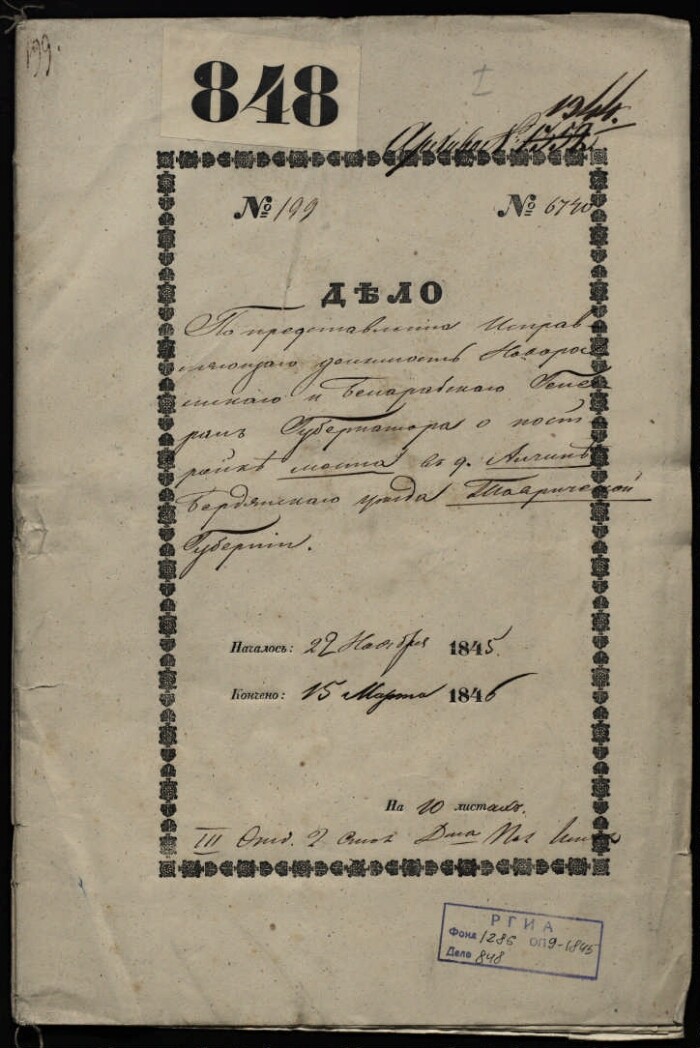 199.
848
I
1344.
Архивн. № 1752
№ 199 № 6740
ДѢЛО
По представленiю Исправ
ляющаго должность Новорос
сiйскаго и Бессарабскаго Гене
ралъ Губернатора о пост
ройкѣ моста въ д.
Бердянскаго уѣзда Таврической
Губернiи.
Началось: 22 Ноября 1845.
Кончено: 15 Марта 1846
На 10 листахъ.
III Отд. 2 Столъ
РГИА
Фонд 1286 ОП 9-1845
Дело 848